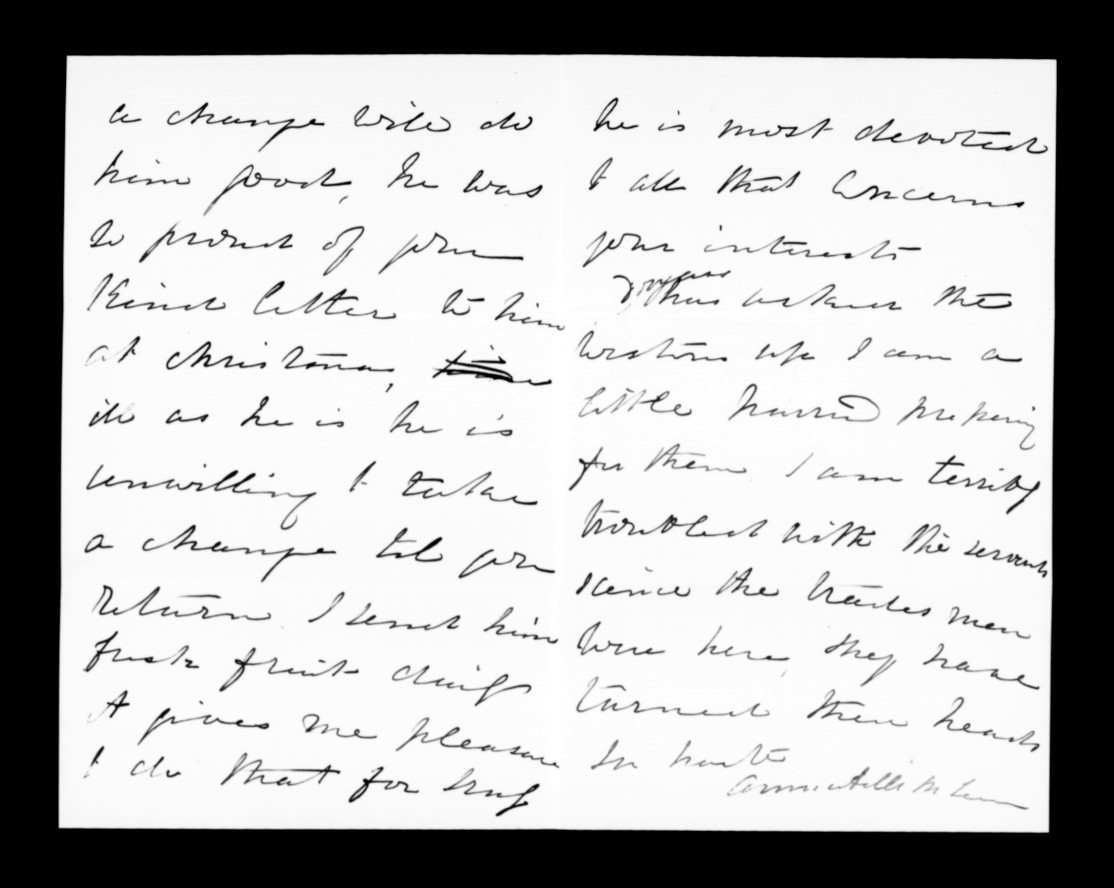 a change will do
him good, he was
so proud of your
Kind letter to him
at christmas,
ill as he is he is
unwilling to take
a change til you
return I send him
fresh fruit daily
it gives me pleasure
to do that for truly
he is most devoted
to all that concerns
your interests
the
up I am a
little hurried preparing
for them I am terribly
troubled with the servants
science the trades men
were here, they have
turned their heads
In haste
McLean